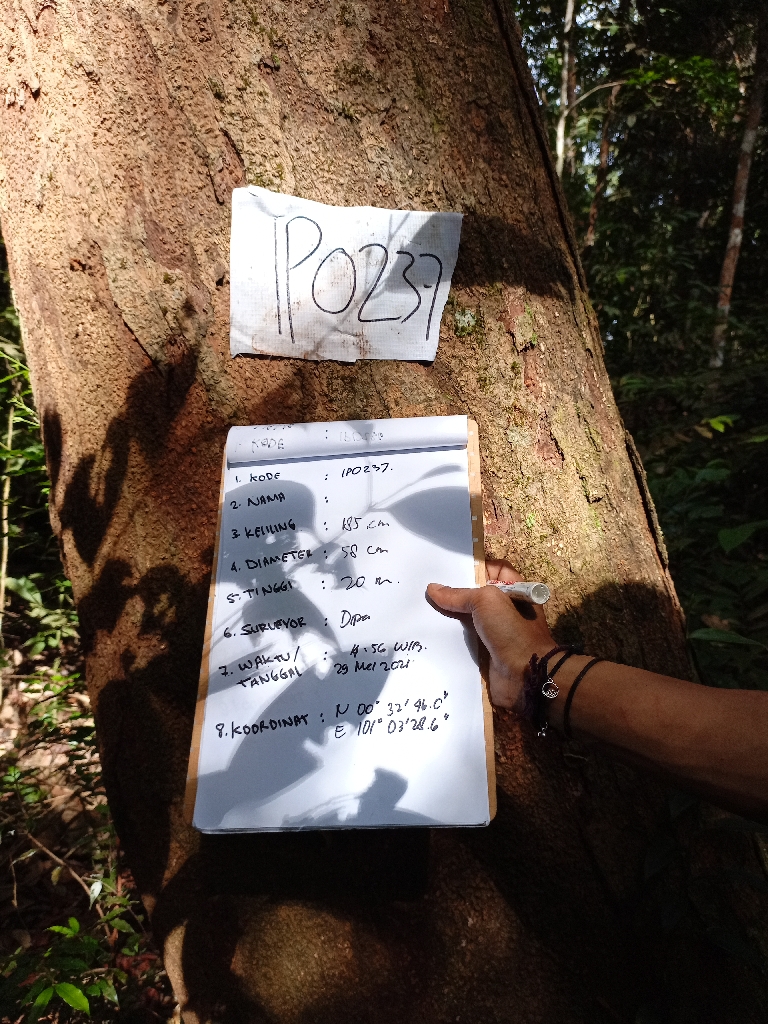 IP0237
KODE :
1. KODE : IP0237.
2. NAMA :
3. KELILING : 185 cm
4. DIAMETER : 58 cm
5. TINGGI : 20 m.
6. SURVEYOR : Dipa
7. WAKTU/ TANGGAL : WIB.
29 Mei 2021
8. KOORDINAT : N 00° 32' 46.0"
E 101° 03' 28.6"